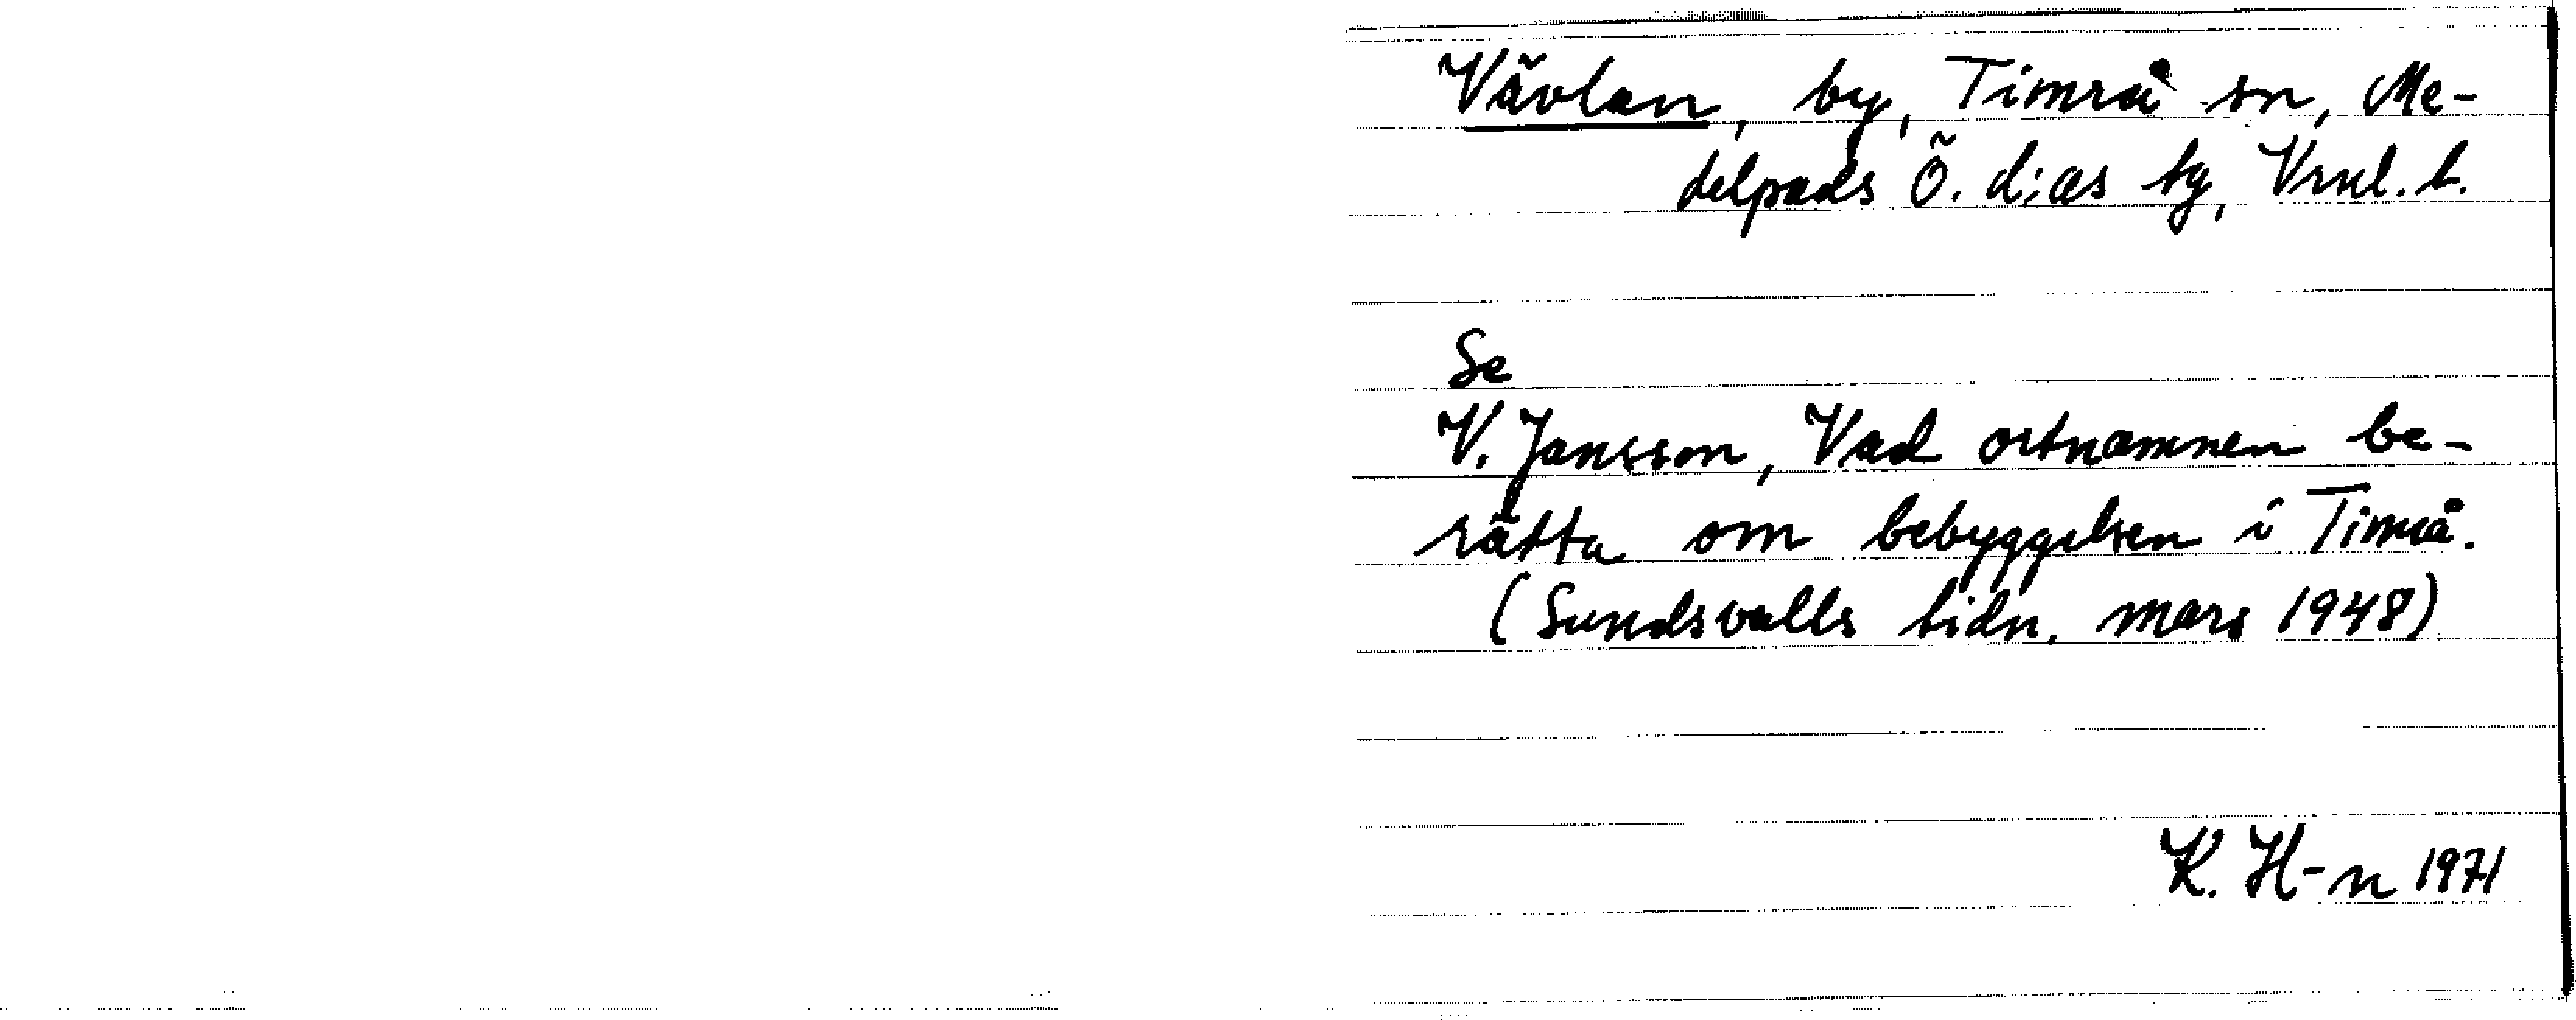 Vävlan, by, Timrå sn, Me-
delpads Ö. d:as tg, Vrnl. l.
Se
V. Jansson, Vad ortnamnen be-
rätta om bebyggelsen i Timrå.
(Sundsvalls tidn. mars 1948)
K. H-n 1971